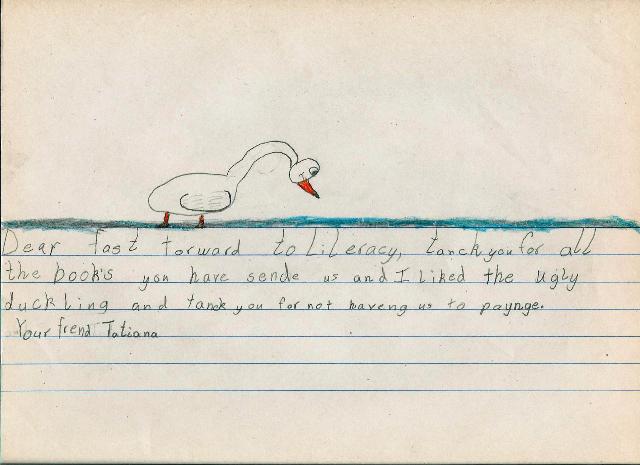 Dear fast forward to Literacy, tanck you for all
the book's you have sende us and I liked the ugly
duckling and tanck you for not maveng us to paynge.
Your frend Tatiana